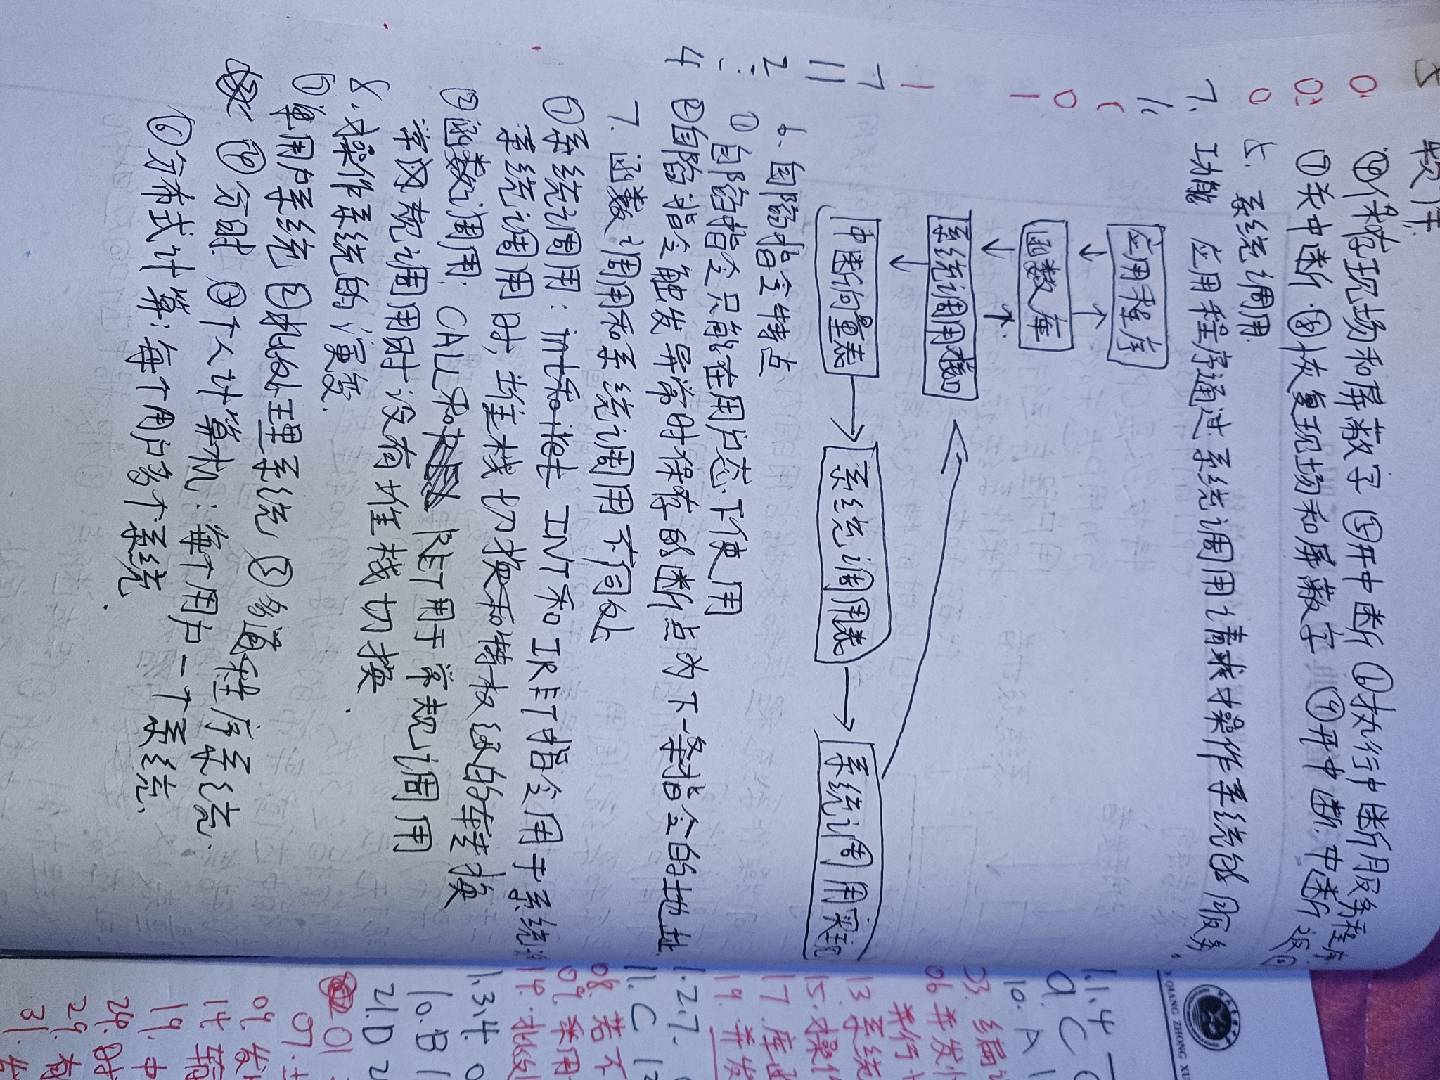 软件.
④保存现场和屏蔽字 ⑤开中断 ⑥执行中断服务程序.
⑦关中断 ⑧恢复现场和屏蔽字 ⑨开中断.中断返回
5. 系统调用.
功能 应用程序通过系统调用请求操作系统的服务.
应用程序
函数库
系统调用接口
中断向量表 系统调用表 系统调用实现
6. 自陷指令特点
①自陷指令只能在用户态下使用
②自陷指令触发异常时保存的断点为下一条指令的地址.
7. 函数调用和系统调用不同处
①系统调用: int和iret INT和IRET指令用于系统
系统调用时,堆栈切换和特权级的转换
②函数调用: CALL和 RET用于常规调用
常规调用时没有堆栈切换.
8. 操作系统的演变.
①单用户系统 ②批处理系统 ③多道程序系统.
④分时. ⑤个人计算机: 每个用户一个系统.
⑥分布式计算: 每个用户多个系统.
5
0.
0
0
7.
0
1
1
7
11
2
4
QIANG ZHONG XU
1.1.4
9. C
10. A
03. 编
06 并发
并行
13 系统
15. 操作
17. 库函
19. 并发
1.2.7.
11. C
08. 若不
09. 采用
14. 批处
1.3.4.
10. B
21. D
01
07.
09. 发
14 输
19. 中
24. 时
29. 有
31.